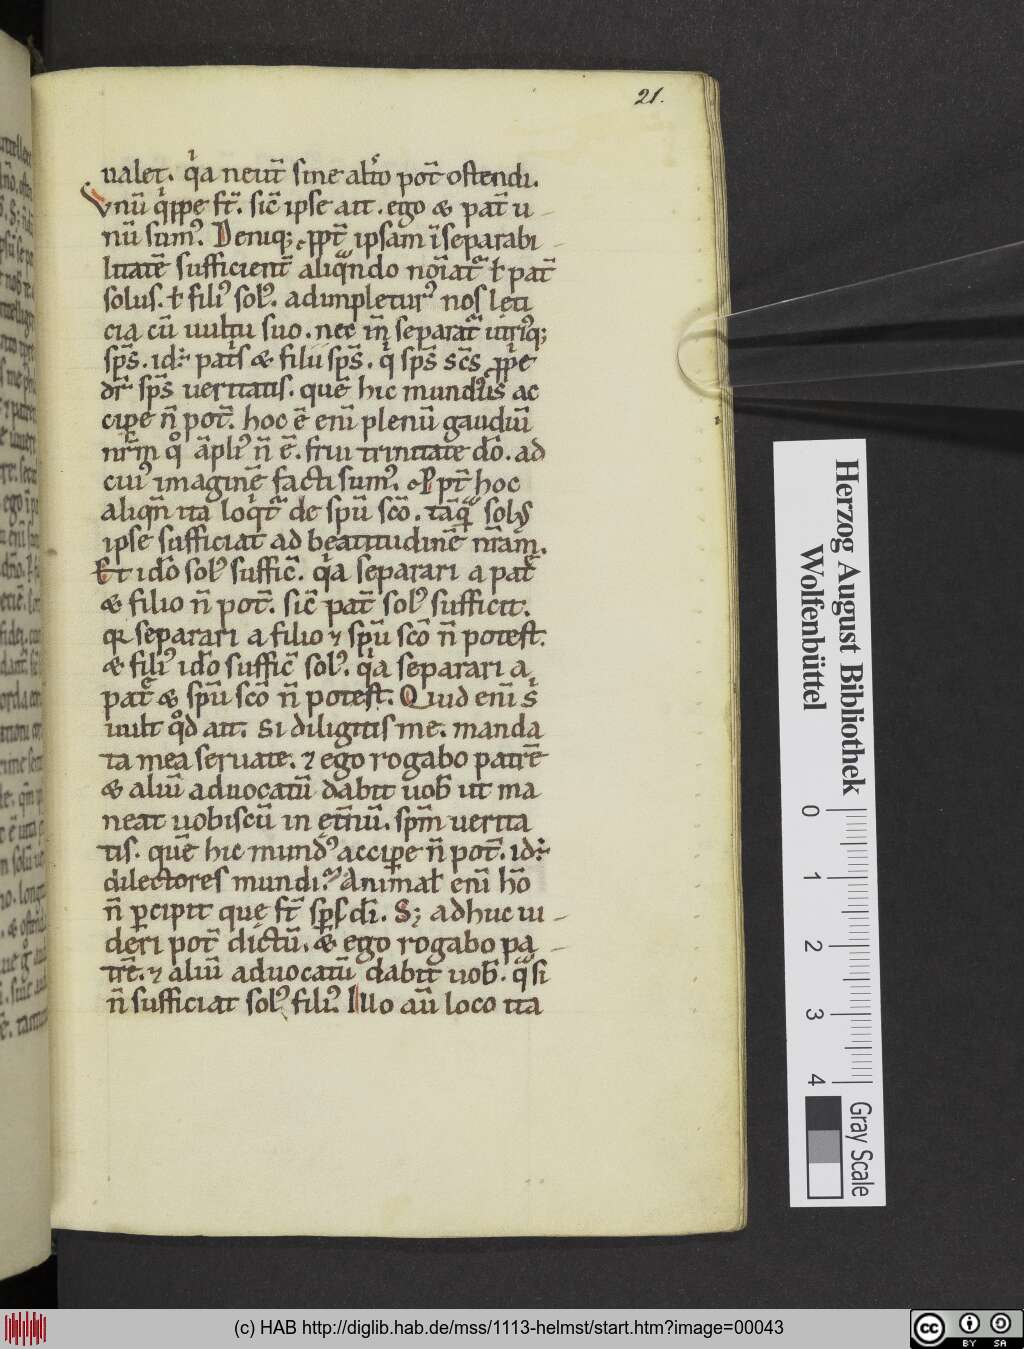 21.
ualet. qͥa neut̄ sine alt̾o pot̄ ostendi.
Vnū qͥppe st̄. sic̄ ipse ait. ego & pat̄ u
nū sumꝰ. Deniq; ꝓpt̄ ipsam īseparabi
litatē sufficient̄ aliqᷓndo noīat̾ ꝉ pat̄
solus. ꝉ filiꝰ solꝰ. adimpleturꝰ nos lęti
cia cū uultu suo. nec in̄ separat̾ utriꝰq;
sps̄. id÷ pat̄s & filii sps̄. qͥ sps̄ sc̄s ꝓpͥe
dr̄ sps̄ ueritatis. quē hic mundꝰ is ac
cipe n̄ pot̄. hoc ē enī plenū gaudiū
nr̄m qͦ āpliꝰ n̄ ē. frui trinitate dō. ad
cuiꝰ imaginē facti sumꝰ. P pt̄ hoc
aliqn̄ ita loqͥt̾ de spū scō. tāqᷓ solꝰ
ipse sufficiat ad beatitudinē nr̄am.
Et idō solꝰ suffic̄. qͥa separari a patͤ
& filio n̄ pot̄. sic̄ pat̄ solꝰ sufficit.
qꝛ separari a filio ⁊ spū scō n̄ potest.
& filiꝰ idō suffic̄ solꝰ. qͥa separari a
patͤ & spū scō n̄ potest. Quid enī sͥ
uult qͦd ait. Si diligitis me. manda
ta mea seruate. ⁊ ego rogabo patrē
& aliū aduocatū dabit uob̄ ut ma
neat uobiscū in ęt̄nū. spm̄ uerita
tis. quē hic mundꝰ accipe n̄ pot̄. id÷
dilectores mundi. Animał enī hō
n̄ ꝑcipit quę st̄ sp̄s dī. S; adhuc ui
deri pot̄ dictū. & ego rogabo pa
trē. ⁊ aliū aduocatū dabit uob̄. qͣsi
n̄ sufficiat solꝰ filiꝰ. Illo aū loco ita
Herzog August Bibliothek
Wolfenbüttel
0 1 2 3 4
Gray Scale
(c) HAB http://diglib.hab.de/mss/1113-helmst/start.htm?image=00043
cc BY SA